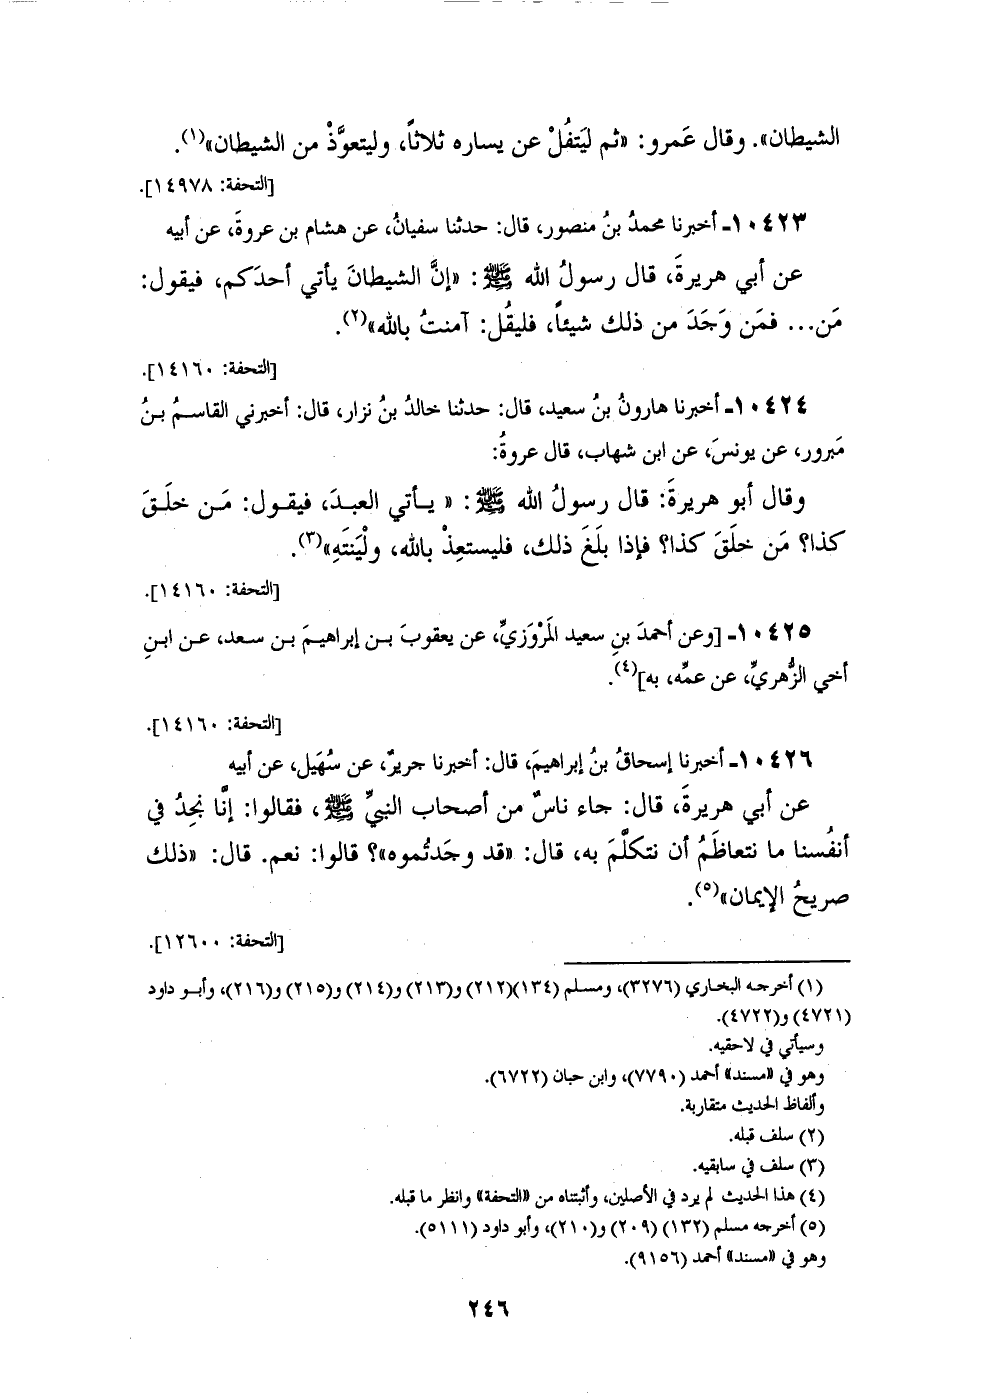 الشيطان». وقال عَمرو: «ثم ليَتفُلْ عن يساره ثلاثاً، وليتعوَّذْ من الشيطان»(١).
[التحفة: ١٤٩٧٨].
١٠٤٢٣ـ أخبرنا محمدُ بنُ منصور، قال: حدثنا سفيانُ، عن هشام بن عروةَ، عن أبيه
عن أبي هريرةَ، قال رسولُ الله ﷺ: «إنَّ الشيطانَ يأتي أحدَكم، فيقول:
مَن... فمَن وَجَدَ من ذلك شيئاً، فليقُل: آمنتُ بالله»(٢).
[التحفة: ١٤١٦٠].
١٠٤٢٤ـ أخبرنا هارونُ بنُ سعيد، قال: حدثنا خالدُ بنُ نزار، قال: أخبرني القاسمُ بنُ
مَبرور، عن يونسَ، عن ابن شهاب، قال عروةُ:
وقال أبو هريرةَ: قال رسولُ الله ﷺ: « يأتي العبدَ، فيقول: مَن خلَقَ
كذا؟ مَن خلَقَ كذا؟ فإذا بلَغَ ذلك، فليستعِذْ بالله، ولْيَنتَهِ»(٣).
[التحفة: ١٤١٦٠].
١٠٤٢٥ـ [وعن أحمدَ بنِ سعيد المَرْوَزيِّ، عن يعقوبَ بن إبراهيمَ بن سعد، عن ابنِ
أخي الزُّهريِّ، عن عمِّه، به](٤).
[التحفة: ١٤١٦٠].
١٠٤٢٦ـ أخبرنا إسحاقُ بنُ إبراهيمَ، قال: أخبرنا جريرٌ، عن سُهَيل، عن أبيه
عن أبي هريرةَ، قال: جاء ناسٌ من أصحاب النبيِّ ﷺ، فقالوا: إنَّا نجِدُ في
أنفُسنا ما نتعاظَمُ أن نتكلَّمَ به، قال: «قد وجَدتُموه»؟ قالوا: نعم. قال: «ذلك
صريحُ الإيمان»(٥).
[التحفة: ١٢٦٠٠].
(١) أخرجه البخاري (٣٢٧٦)، ومسلم (١٣٤)(٢١٢) و(٢١٣) و(٢١٤) و(٢١٥) و(٢١٦)، وأبو داود
(٤٧٢١) و(٤٧٢٢).
وسيأتي في لاحقيه.
وهو في «مسند» أحمد (٧٧٩٠)، وابن حبان (٦٧٢٢).
وألفاظ الحديث متقاربة.
(٢) سلف قبله.
(٣) سلف في سابقيه.
(٤) هذا الحديث لم يرد في الأصلين، وأثبتناه من «التحفة» وانظر ما قبله.
(٥) أخرجه مسلم (١٣٢) (٢٠٩) و(٢١٠)، وأبو داود (٥١١١).
وهو في «مسند» أحمد (٩١٥٦).
٢٤٦